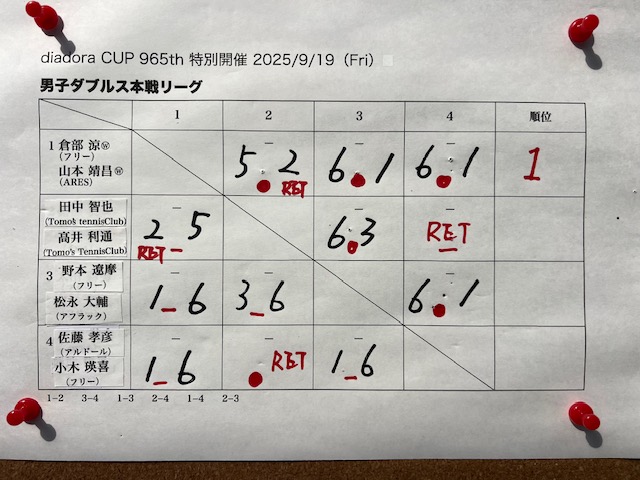 diadora CUP 965th 特別開催 2025/9/19（Fri）
男子ダブルス本戦リーグ
1 2 3 4 順位
1 倉部 涼Ⓦ
（フリー）
山本 靖昌Ⓦ
(ARES)
5 2 RET 6 1 6 1 1
田中 智也
(Tomo's tennisClub)
高井 利通
(Tomo's TennisClub)
2 5 RET 6 3 RET
3 野本 遼摩
（フリー）
松永 大輔
（アフラック）
1 6 3 6 6 1
4 佐藤 孝彦
（アルドール）
小木 瑛喜
（フリー）
1 6 RET 1 6
1-2 3-4 1-3 2-4 1-4 2-3